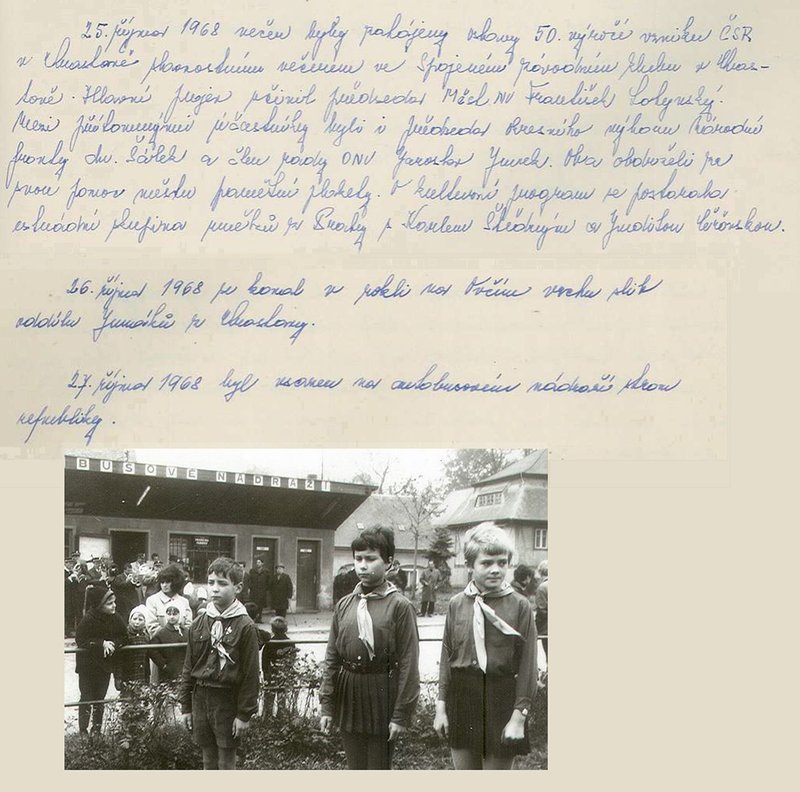 25. října 1968 večer byly zahájeny oslavy 50. výročí vzniku ČSR
v Chrastavě slavnostním večerem ve Spojeném závodním klubu v Chras-
tavě. Hlavní projev učinil předseda MěstNV František Lobynský.
Mezi přítomnými účastníky byli i předseda okresního výboru Národní
fronty dr. Šálek a člen rady ONV Jaroslav Jurek. Oba obdrželi ze
svou pomoc městu pamětní plakety. O kulturní program se postarala
estrádní skupina umělců z Prahy s Karlem Štědrým a Juditou Čeřovskou.
26. října 1968 se konal v rokli na Ovčím vrchu slib
oddílu Junáků z Chrastavy.
27. října 1968 byl vsazen na autobusovém nádraží strom
republiky.
BUSOVÉ NÁDRAŽÍ